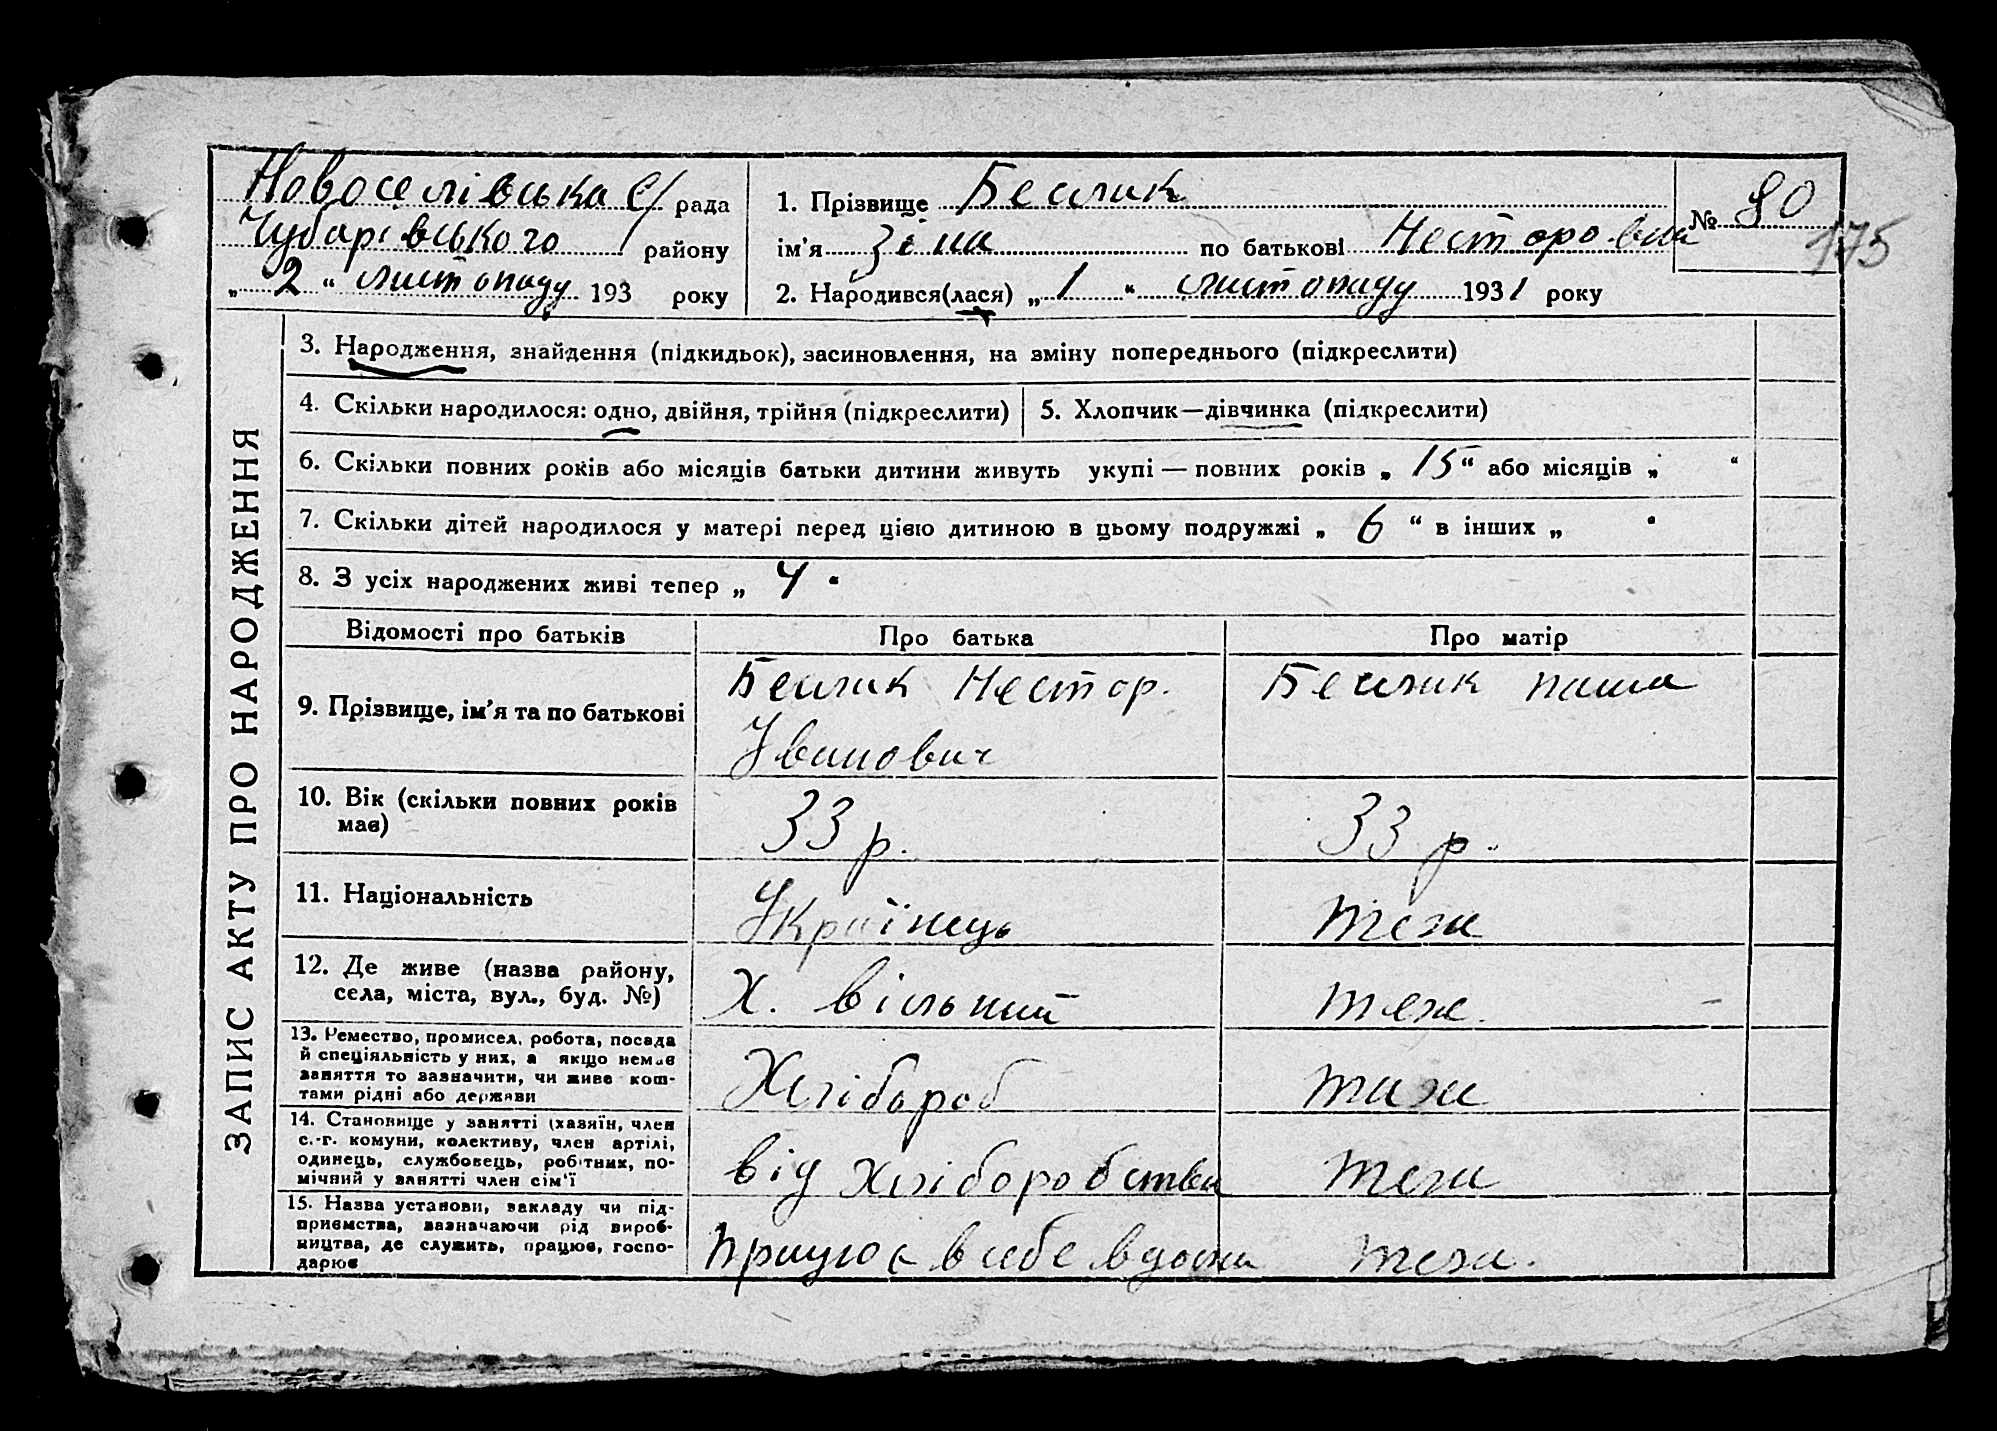 Новоселівська С/рада
Чубарівського району
„ 2 “ листопаду 193 року
1. Прізвище Беилик
ім'я Зіна по батькові Несторовна
2. Народився(лася) „ 1 “ листопаду 1931 року
№ 80
175
ЗАПИС АКТУ ПРО НАРОДЖЕННЯ
3. Народження, знайдення (підкидьок), засиновлення, на зміну попереднього (підкреслити)
4. Скільки народилося: одно, двійня, трійня (підкреслити)
5. Хлопчик—дівчинка (підкреслити)
6. Скільки повних років або місяців батьки дитини живуть укупі — повних років „ 15 “ або місяців „ “
7. Скільки дітей народилося у матері перед цією дитиною в цьому подружжі „ 6 “ в інших „ “
8. З усіх народжених живі тепер „ 4 “
Відомості про батьків Про батька Про матір
9. Прізвище, ім'я та по батькові
Беилик Нестор.
Іванович
Беилик паша
10. Вік (скільки повних років
має)
33 р. 33 р.
11. Національність Українець теж
12. Де живе (назва району,
села, міста, вул., буд. №)
Х. вільний теж.
13. Ремество, промисел, робота, посада
й спеціяльність у них, а якщо немає
заняття то зазначити, чи живе кош-
тами рідні або держави
Хлібороб таж
14. Становище у занятті (хазяїн, член
с.-г. комуни, колективу, член артілі,
одинець, службовець, робітник, по-
мічний у занятті член сім'ї
від хліборобства теж
15. Назва установи, закладу чи під-
приємства, зазначаючи рід вироб-
ництва, де служить, працює, госпо-
дарює
Працює в себе вдома теж.